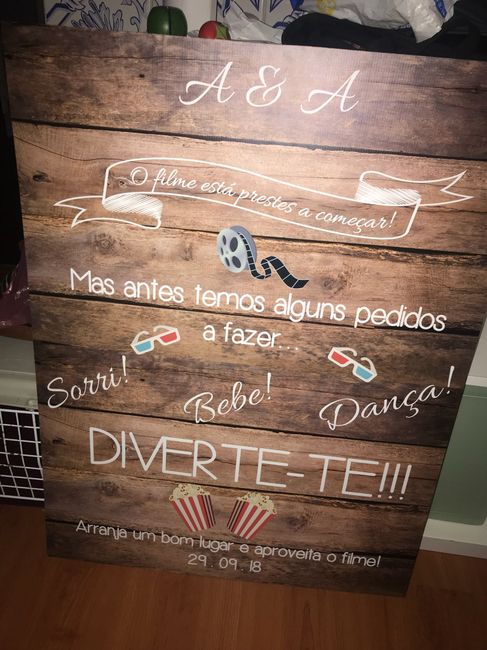 A & A
O filme está prestes a começar!
Mas antes temos alguns pedidos
a fazer...
Sorri! Bebe! Dança!
DIVERTE-TE!!!
Arranja um bom lugar e aproveita o filme!
29.09.18